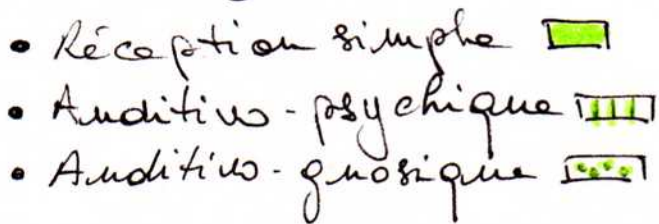 • Réception simple
• Auditivo-psychique
• Auditivo-gnosique